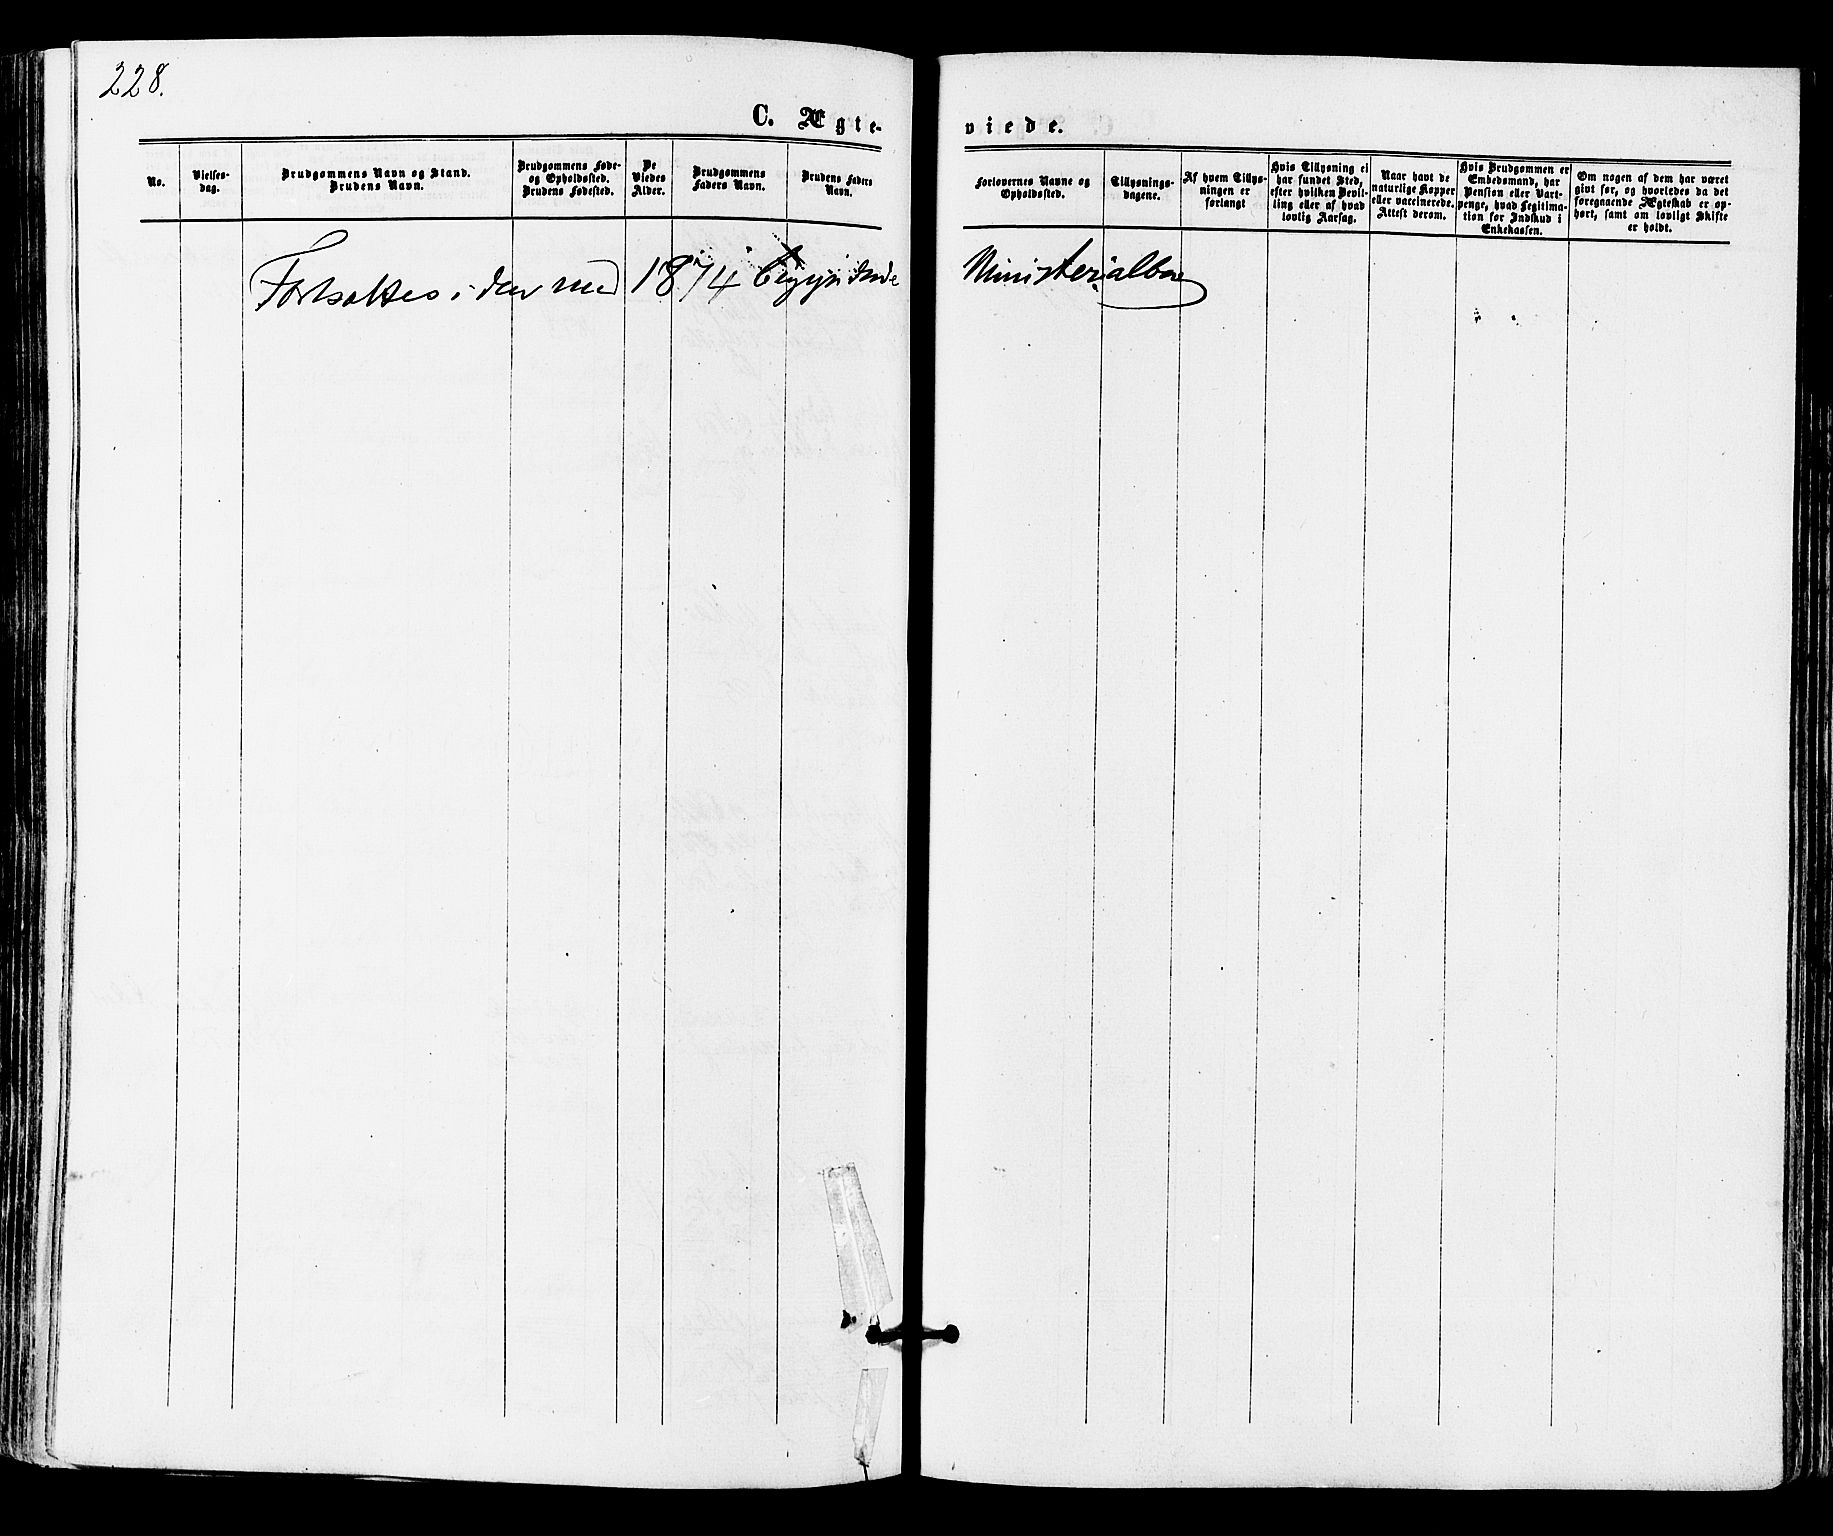 228.
C. Ægte-
viede.
No.
Vielses-
dag.
Brudgommens Navn og Stand.
Brudens Navn.
Brudgommens Føde-
og Opholdssted.
Brudens Fødested.
De
Viedes
Alder.
Brudgommens
Faders Navn.
Brudens Faders
Navn.
Forlovernes Navne og
Opholdssted.
Tillysnings-
dagene.
Af hvem Tillys-
ningen er
forlangt
Hvis Tillysning ei
har fundet Sted,
efter hvilken Bevil-
ling eller af hvad
lovlig Aarsag.
Naar havt de
naturlige Kopper
eller vaccinerede.
Attest derom.
Hvis Brudgommen er
Embedsmand, har
Pension eller Vart-
penge, hvad Legitima-
tion for Indskud i
Enkekassen.
Om nogen af dem har været
givt før, og hvorledes da det
foregaaende Ægteskab er op-
hørt, samt om lovligt Skifte
er holdt.
Fortsættes i den med 1874 begyndende Ministerialbog